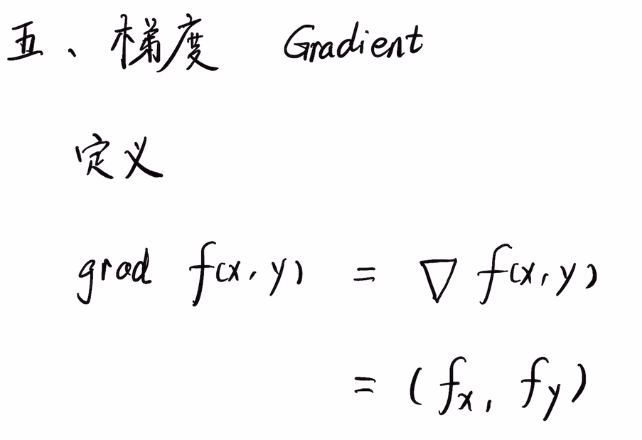 五、梯度 Gradient
定义
grad f(x, y) = ∇ f(x, y)
= (fₓ, f_y)